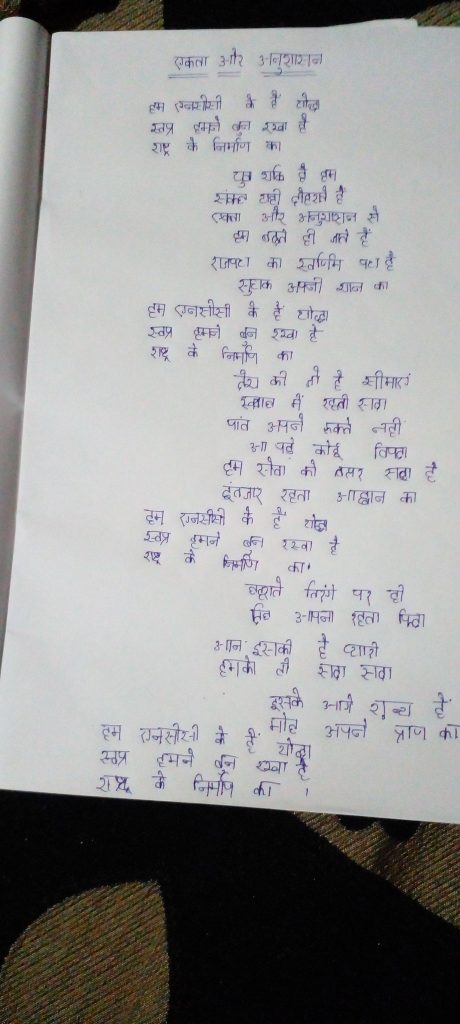 एकता और अनुशासन
हम एनसीसी के हैं योद्धा
स्वप्न हमने बुन रखा है
राष्ट्र के निर्माण का
युवा शक्ति है हम
संकल्प यही दोहराते हैं
एकता और अनुशासन से
हम बढ़ते ही जाते हैं
राजपथ का स्वर्णिम पथ है
अपनी शान का
हम एनसीसी के हैं योद्धा
स्वप्न हमने बुन रखा है
राष्ट्र के निर्माण का
देश की तो है सीमाएं
ख्याल में रहती सदा
पांव अपने रुकते नहीं
आ पड़े कोई विपदा
हम सेवा को तत्पर सदा है
इंतजार रहता आह्वान का
हम एनसीसी के हैं योद्धा
स्वप्न हमने बुन रखा है
राष्ट्र के निर्माण का
लहराते तिरंगे पर ही
अपना रहता फिदा
आन इसकी है प्यारी
हमको तो सदा सदा
इसके आगे शून्य है
मोह अपने प्राण का
हम एनसीसी के हैं योद्धा
स्वप्न हमने बुन रखा है
राष्ट्र के निर्माण का ।